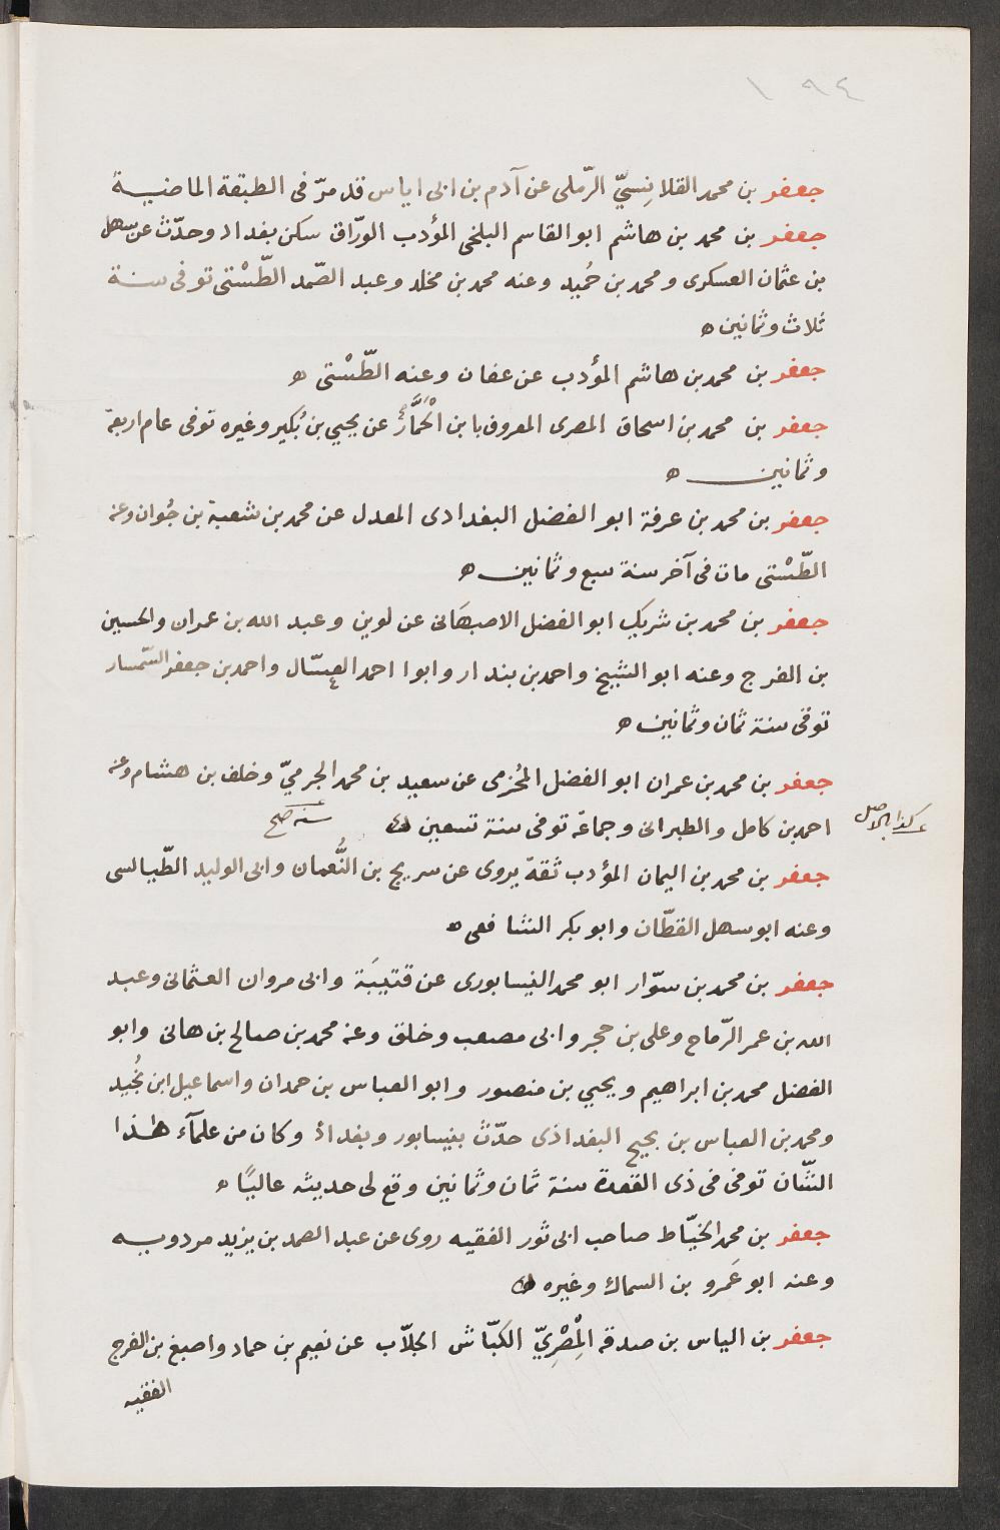 ١٩٤
جعفر بن محمد القلانِسيّ الرّملى عن آدم بن ابى اياس قد مرّ فى الطبقة الماضية
جعفر بن محمد بن هاشم ابو القاسم البلخى المؤدب الورّاق سكن بغداد وحدّث عن سهل
بن عثمان العسكرى ومحمد بن حُميد وعنه محمد بن مخلد وعبد الصّمد الطّسْتى توفى سنة
ثلاث وثمانين ه
جعفر بن محمد بن هاشم المؤدب عن عفان وعنه الطّسْتى ه
جعفر بن محمد بن اسحاق المصرى المعروف بابن الْحَمَّارُ عن يحيي بن بُكير وغيره توفى عام اربعة
وثمانين ه
جعفر بن محمد بن عرفة ابو الفضل البغدادى المعدل عن محمد بن شعبة بن جُوان وعنه
الطّسْتى مات فى آخر سنة سبع وثمانين ه
جعفر بن محمد بن شريك ابو الفضل الاصبهَانى عن لوين وعبد الله بن عمران والحسين
بن الفرج وعنه ابو الشيخ واحمد بن بندار وابوا احمد العسّال واحمد بن جعفر السّمسار
توفى سنة ثمان وثمانين ه
جعفر بن محمد بن عمران ابو الفضل المُخزمى عن سعيد بن محمد الجرميّ وخلف بن هشام وعنه
احمد بن كامل والطبرانى وجماعة توفى سنة تسعين ه سنه صح
كذا بالاصل
جعفر بن محمد بن اليمان المؤدب ثقة يروى عن سريج بن النُّعمان وابى الوليد الطّيالسى
وعنه ابو سهل القطّان وابو بكر الشافعى ه
جعفر بن محمد بن سوّار ابو محمد النيسابورى عن قتيبَة وابى مروان العثمانى وعبد
الله بن عمر الرّماح وعلى بن حجر وابى مصعب وخلق وعنه محمد بن صالح بن هانى وابو
الفضل محمد بن ابراهيم ويحيي بن منصور وابو العباس بن حمدان واسماعيل ابن نُجيد
ومحمد بن العباس بن نجيح البغداذى حدّث بنيسابور وبغداذ وكان من علمآء هٰذا
الشّان توفى فى ذى القعدة سنة ثمان وثمانين وقع لى حديثه عاليًا ه
جعفر بن محمد الخيّاط صاحب ابى ثور الفقيه روى عن عبد الصمد بن يزيد مردويه
وعنه ابو عَمرو بن السماك وغيره ه
جعفر بن الياس بن صدقه الْمِصْرِيّ الكبّاش الجلاّب عن نعيم بن حماد واصبغ بن الفرج
الفقيه